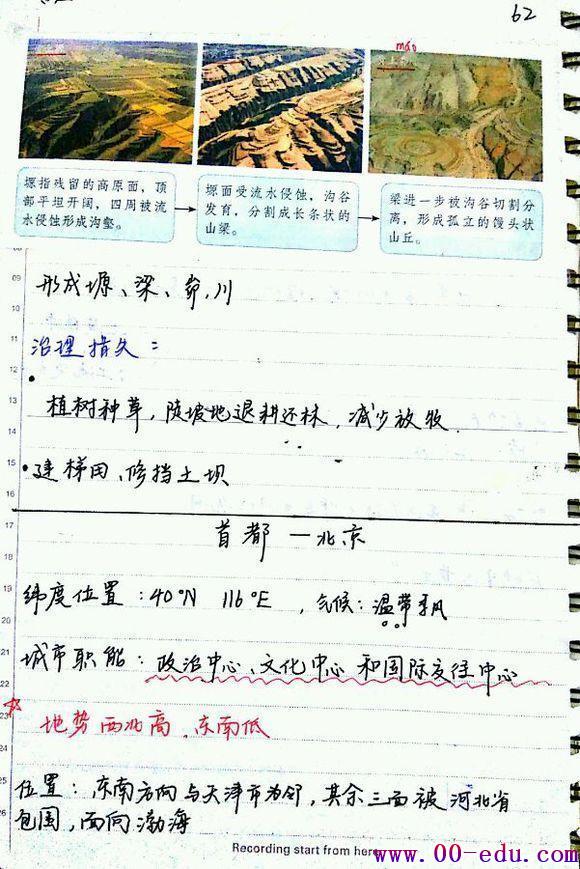 62
máo
塬指残留的高原面，顶
部平坦开阔，四周被流
水侵蚀形成沟壑。
塬面受流水侵蚀，沟谷
发育，分割成长条状的
山梁。
梁进一步被沟谷切割分
离，形成孤立的馒头状
山丘。
09
形成塬、梁、峁、川
10
11
治理措久：
12
13
植树种草，陡坡地退耕还林，减少放牧
14
15
·建梯田、修挡土坝
16
17
首都—北京
18
19
纬度位置：40°N 116°E ，气候：温带季风
20
21
城市职能：政治中心、文化中心和国际交往中心
22
23
地势西北高，东南低
25
位置：东南方向与天津市为邻，其余三面被河北省
26
包围，面向渤海
Recording start from here
www.00-edu.com